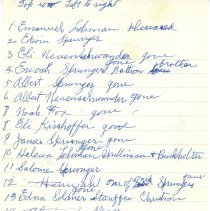 Top row Left to right
1 Emanuel Lehman Deceased
2 Edwin Sprunger
3 Eli Neuenschwander gone
4 Enoch Sprunger Nathan brother
gone
5 Albert Sprunger gone
6 Albert Neuenschwander gone
7 Noah Fox gone
8 Eli Kirchhofer good
9 James Sprunger gone
10 Helena Lehman Stullman & Burkhalter
11 Salome Sprunger
12 Hannah one of Sprungers gone
13 Edna Soldner Stauffer Christian
gone